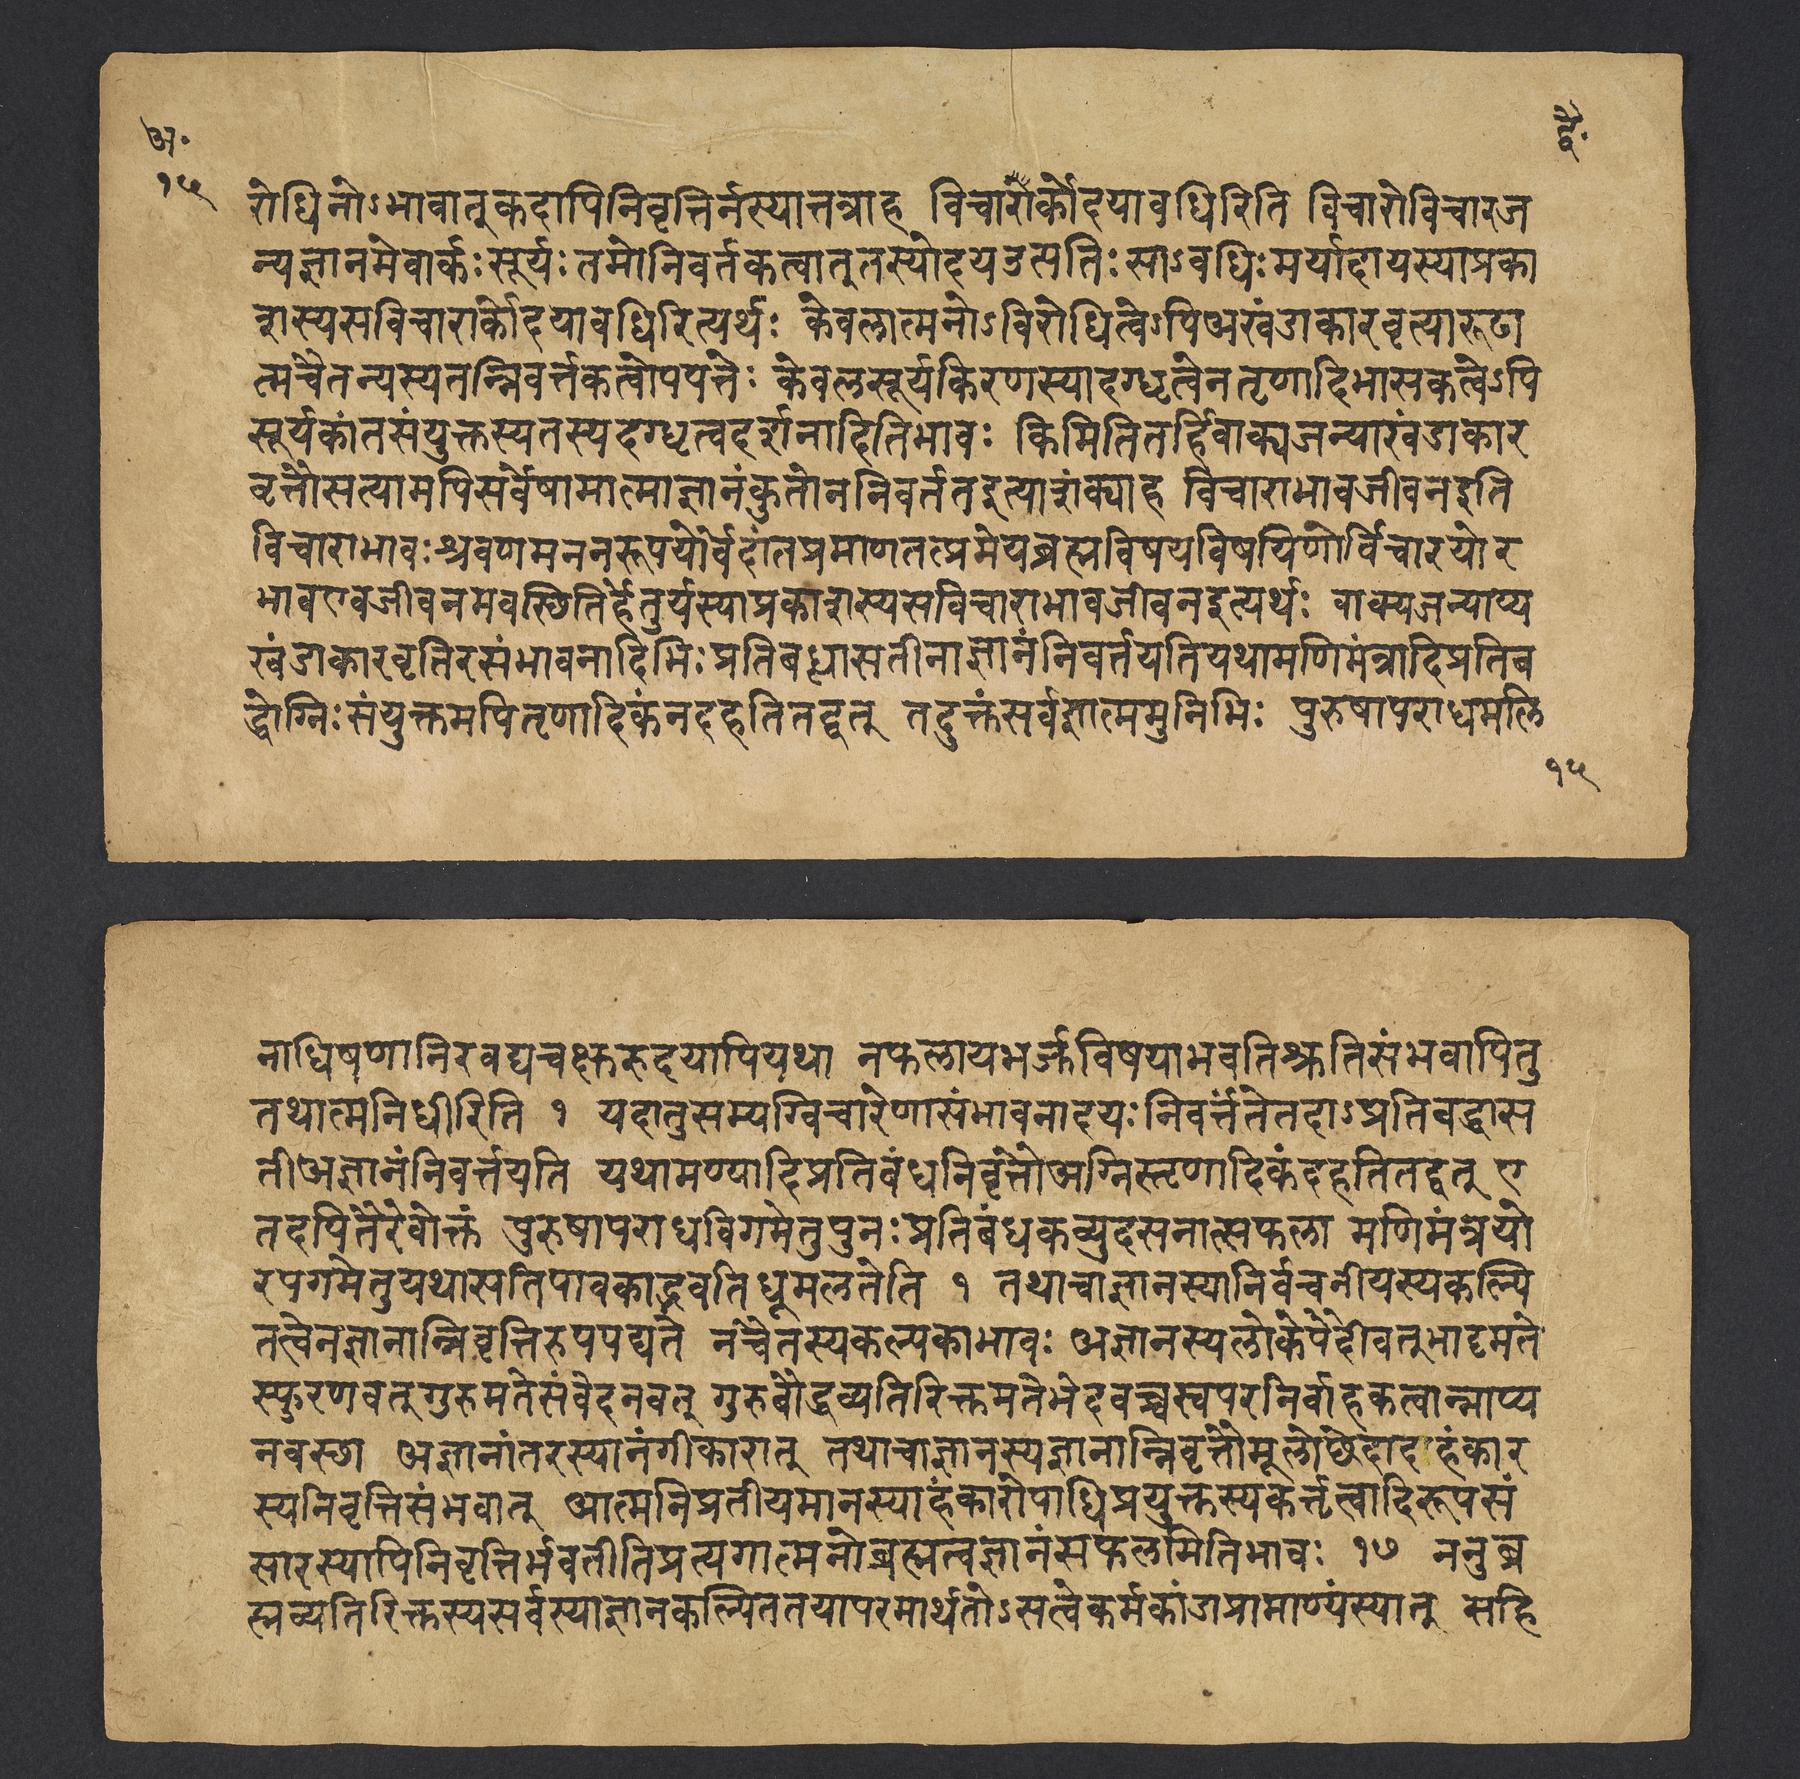 अ॰
१५
द्वै॰
रोधिनोऽभावात्कदापिनिवृत्तिर्नस्यात्तत्राह विचारार्कोदयावधिरिति विचारोविचारज
न्यज्ञानमेवार्कःसूर्यःतमोनिवर्तकत्वात्तस्योदयउत्पतिःसाऽवधिःमर्यादायस्याप्रका
शस्यसविचारार्कोदयावधिरित्यर्थः केवलात्मनोऽविरोधित्वेऽपिअखंडाकारवृत्यारूढा
त्मचैतन्यस्यतन्निवर्त्तकत्वोपपत्तेः केवलसूर्यकिरणस्यादग्धृत्वेनतृणादिभासकत्वेऽपि
सूर्यकांतसंयुक्तस्यतस्यदग्धृत्वदर्शनादितिभावः किमितितर्हिवाक्यजन्याखंडाकार
वृत्तौसत्यामपिसर्वेषामात्माज्ञानंकुतोननिवर्ततइत्याशंक्याह विचाराभावजीवनइति
विचाराभावःश्रवणमननरूपयोर्वेदांतप्रमाणतत्प्रमेयब्रह्मविषयविषयिणोर्विचारयोर
भावएवजीवनमवस्थितिर्हेतुर्यस्याप्रकाशस्यसविचाराभावजीवनइत्यर्थः वाक्यजन्याप्य
खंडाकारवृत्तिरसंभावनादिभिःप्रतिबध्यासतीनाज्ञानंनिवर्त्तयतियथामणिमंत्रादिप्रतिब
द्धोग्निःसंयुक्तमपितृणादिकंनदहतितद्वत् तदुक्तंसर्वज्ञात्ममुनिभिः पुरुषापराधमलि
१५
नाधिषणानिरवद्यचक्षुरुदयापियथा नफलायभर्च्छुविषयाभवतिश्रुतिसंभवापितु
तथात्मनिधीरिति १ यदातुसम्यग्विचारेणासंभावनादयःनिवर्त्तंतेतदाऽप्रतिबद्धास
तीअज्ञानंनिवर्त्तयति यथामण्यादिप्रतिबंधनिवृत्तौअग्निस्तृणादिकंदहतितद्वत् ए
तदपितैरेवोक्तं पुरुषापराधविगमेतुपुनःप्रतिबंधकव्युदसनात्सफला मणिमंत्रयो
रपगमेतुयथासतिपावकाद्भवतिधूमलतेति १ तथाचाज्ञानस्यानिर्वचनीयस्यकल्पि
तत्वेनज्ञानान्निवृत्तिरुपपद्यते नचैतस्यकल्पकाभावः अज्ञानस्यलोकेपेदीवत्भाट्टमते
स्फुरणवत्गुरुमतेसंवेदनवत् गुरुबौद्धव्यतिरिक्तमतेभेदवच्चस्वपरनिर्वाहकत्वान्नाप्य
नवस्था अज्ञानांतरस्यानंगीकारात् तथाचाज्ञानस्यज्ञानान्निवृत्तौमूलोछेदादहंकार
स्यनिवृत्तिसंभवात् आत्मनिप्रतीयमानस्याहंकारोपाधिप्रयुक्तस्यकर्त्तृत्वादिरूपसं
सारस्यापिनिवृत्तिर्भवतीतिप्रत्यगात्मनोब्रह्मत्वज्ञानंसफलमितिभावः १७ ननुब्र
ह्मव्यतिरिक्तस्यसर्वस्याज्ञानकल्पिततयापरमार्थतोऽसत्वेकर्मकांडाप्रामाण्यंस्यात् सहि